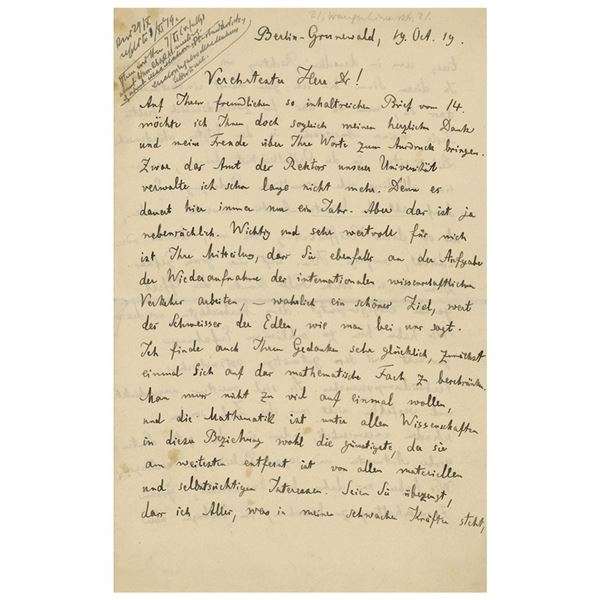 21, Wangenheimstr. 21.
Berlin-Grunewald, 19. Oct. 19.
Verehrtester Herr Dr!
Auf Ihren freundlichen so inhaltreichen Brief vom 14.
möchte ich Ihnen doch sogleich meinen herzlichen Dank
und meine Freude über Ihre Worte zum Ausdruck bringen.
Zwar das Amt des Rektors unserer Universität
verwalte ich schon lange nicht mehr. Denn es
dauert hier immer nur ein Jahr. Aber das ist ja
nebensächlich. Wichtig und sehr wertvoll für mich
ist Ihre Mitteilung, dass Sie ebenfalls an der Aufgabe
der Wiederaufnahme des internationalen wissenschaftlichen
Verkehrs arbeiten, – wahrlich ein schönes Ziel, wert
des Schweisses der Edlen, wie man bei uns sagt.
Ich finde auch Ihren Gedanken sehr glücklich, zunächst
einmal Sich auf das mathematische Fach zu beschränken.
Man muss nicht zu viel auf einmal wollen,
und die Mathematik ist unter allen Wissenschaften
in dieser Beziehung wohl die günstigste, da sie
am weitesten entfernt ist von allen materiellen
und selbstsüchtigen Interessen. Seien Sie überzeugt,
dass ich Alles, was in meinen schwachen Kräften steht,